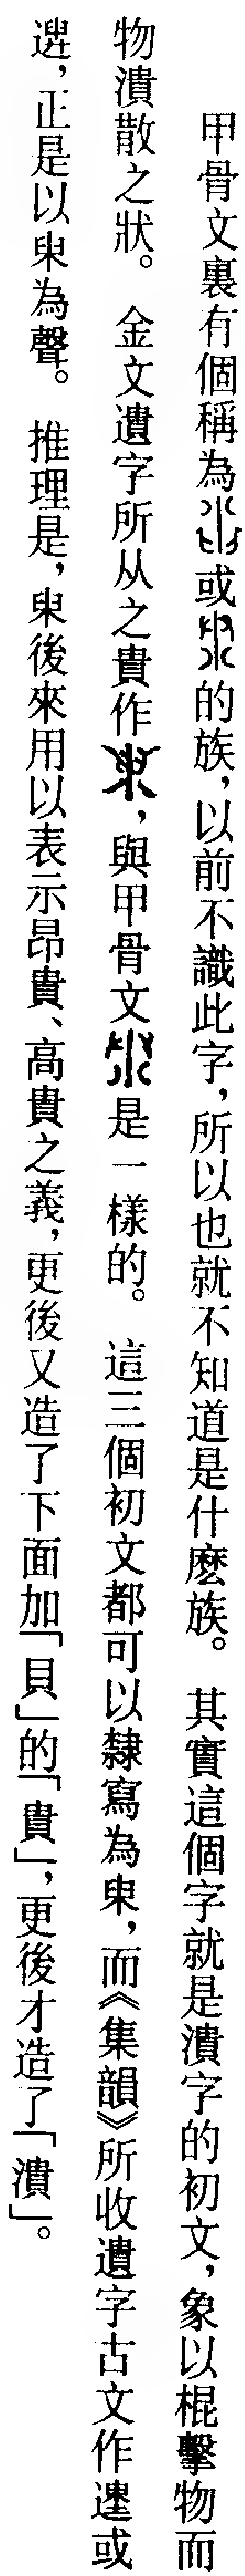 甲骨文裏有個稱為或的族，以前不識此字，所以也就不知道是什麽族。其實這個字就是潰字的初文，象以棍擊物而
物潰散之狀。金文遺字所从之貴作，與甲骨文是一樣的。這三個初文都可以隸寫為㬰，而《集韻》所收遺字古文作或
，正是以㬰為聲。推理是，㬰後來用以表示昂貴、高貴之義，更後又造了下面加「貝」的「貴」，更後才造了「潰」。